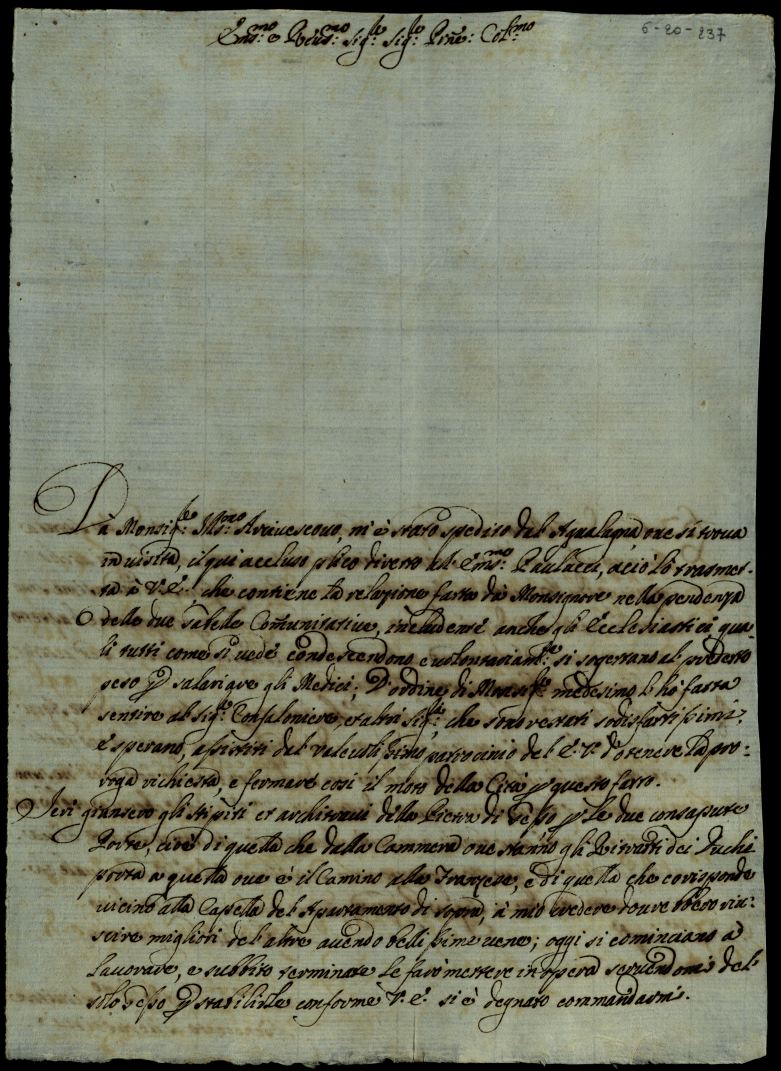 Em.mo e Rev.mo Sig.re Sig.re Pñe: Col.mo
6-20-237
Da Monsig.re Ill.mo Arcivescovo, m'è stato spedito dal Aqualagna ove si trova
in visita, il qui accluso plico diretto al Em.mo Paulucci, acciò lo trasmet-
ta à V.E. che contiene la relazione fatta da Monsignore nella pendenza
delle due Comunitative, includensi anche gli Ecclesiastici qua-
li tutti come si vede condescendono e volontariam.te si sogettano al predetto
peso p salariare gli Medici; D'ordine di Monsig.re medesimo l'hò fatta
sentire al Sig.r Confaloniere, et altri Sig.ri che sono restati sodisfattissimi,
e sperano, assistiti dal valevolissimo patrocinio del E.V. d'otenere la pro-
roga richiesta, e fermare così il moto della Città p questo fatto.
Ieri gionsero gli stipiti et architravi della Pietra di p le due consapute
Porte, cioè di quella che dalla Cammera ove stanno gli Ritratti dei Duchi
porta a quella ove è il Camino alla Franzese, e di quella che corisponde
vicino alla Capella del Apartamento di sopra, à mio credere dovrebbero riu-
scire migliori del altre avendo bellissime vene; oggi si cominciano à
lavorare, e subbito terminate le farò mettere in opera servendomi del
solo p stabilirle conforme V.E. si è degnato commandarmi.